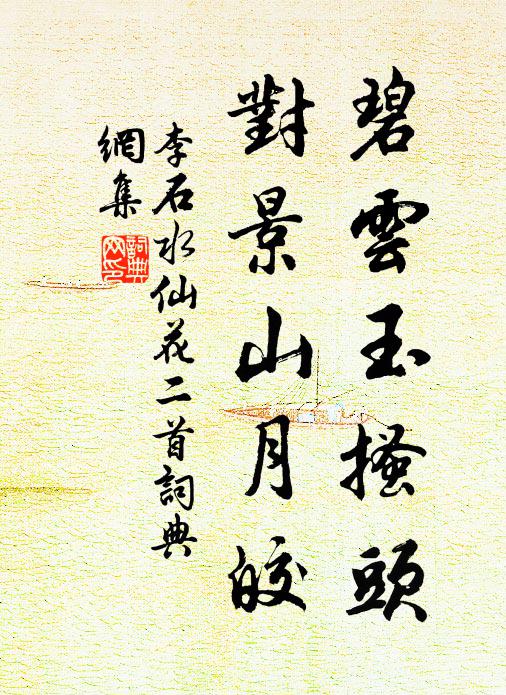 碧雲玉搔頭
對景山月皎
李石水仙花二首詞典
網集
詞典
网印